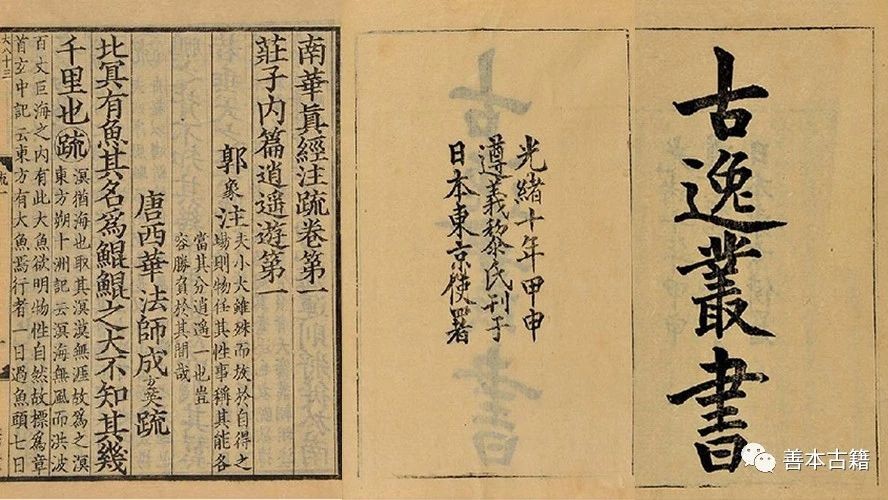 古逸叢書
光緒十年甲申
遵義黎氏刊于
日本東京使署
南華眞經注疏卷第一
莊子内篇逍遥遊第一
郭象注
夫小大雖殊而放於自得之
場則物任其性事稱其能各
當其分逍遥一也豈
容勝負於其間哉
唐西華法師成玄英疏
北冥有魚其名爲鯤鯤之大不知其幾
千里也疏
溟猶海也取其溟漠無涯故爲之溟
東方朔十洲記云溟海無風而洪波
百丈巨海之内有此大魚欲明物性自然故標爲章
首玄中記云東方有大魚焉行者一日過魚頭七日
大八十三
善本古籍